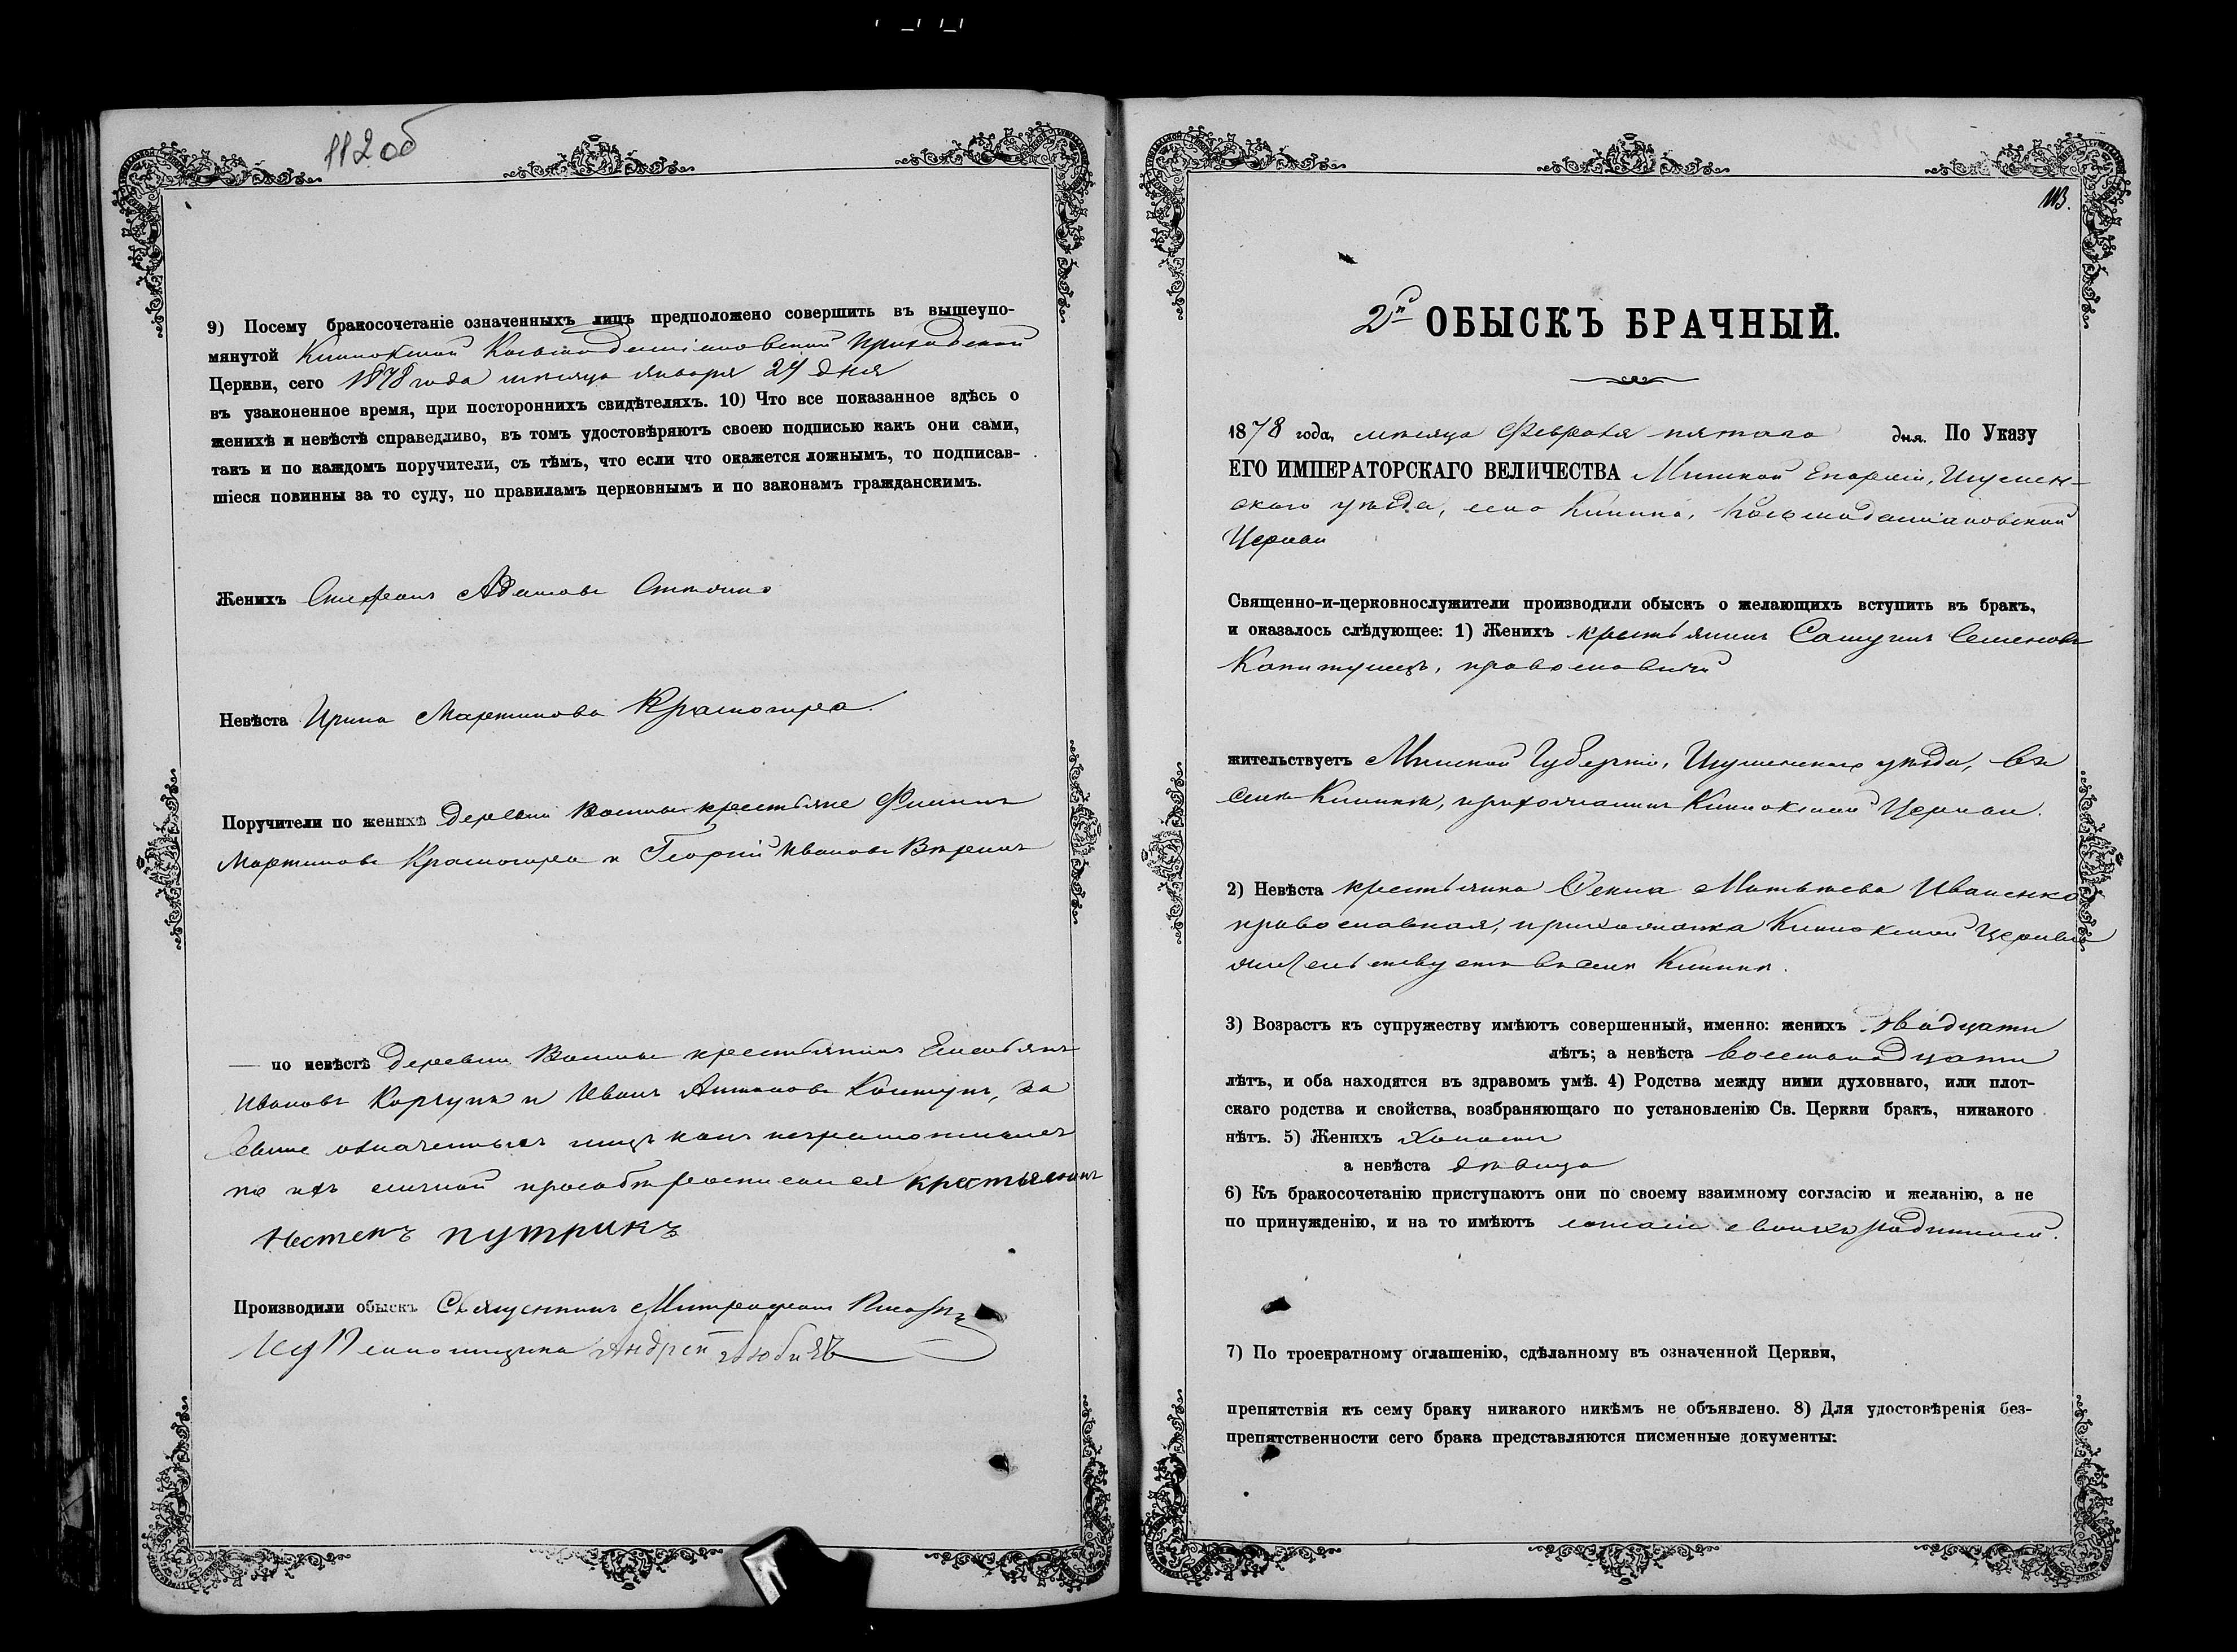 112 об
9) Посему бракосочетаніе означенныхъ лицъ предположено совершить въ вышеупо-
мянутой Клинокской Косьмодеміановской приходской
Церкви, сего 1878 года мѣсяца января 29 дня
въ узаконенное время, при постороннихъ свидѣтеляхъ. 10) Что все показанное здѣсь о
женихѣ и невѣстѣ справедливо, въ томъ удостовѣряютъ своею подписью какъ они сами,
такъ и по каждомъ поручители, съ тѣмъ, что если что окажется ложнымъ, то подписав-
шіеся повинны за то суду, по правиламъ церковнымъ и по законамъ гражданскимъ.
Женихъ Стефанъ Адамовъ
Невѣста Ирина Мартинова Красногира.
Поручители по женихѣ деревни крестьяне Филипъ
Мартиновъ Красногира и Георгій Ивановъ
— по невѣстѣ деревни крестьянинъ Емельянъ
Ивановъ Корчукъ и Иванъ Антоновъ за
выше означенныхъ лицъ какъ неграмотныхъ
по ихъ личной прозьбѣ росписался крестьянинъ
путрикъ
Производили обыскъ Священникъ Митрофанъ
Андрей
113.
2й ОБЫСКЪ БРАЧНЫЙ.
1878 года, мѣсяца Февраля пятаго дня. По Указу
ЕГО ИМПЕРАТОРСКАГО ВЕЛИЧЕСТВА Минской Епархіи, Игумен-
скаго уѣзда, село Клинокъ, Косьмодеміановской
Церкви
Священно-и-церковнослужители производили обыскъ о желающихъ вступить въ бракъ,
и оказалось слѣдующее: 1) Женихъ крестьянинъ Самуилъ Семеновъ
православный
жительствуетъ Минской Губерніи, Игуменскаго уѣзда, въ
селѣ Клинкѣ, прихожанинъ Клинокской Церкви.
2) Невѣста крестьянка Матвѣева Иваненко
православная, прихожанка Клинокской Церкви
жительствуетъ въ селѣ Клинкѣ.
3) Возрастъ къ супружеству имѣютъ совершенный, именно: женихъ двадцати
лѣтъ; а невѣста восемнадцати
лѣтъ, и оба находятся въ здравомъ умѣ. 4) Родства между ними духовнаго, или плот-
скаго родства и свойства, возбраняющаго по установленію Св. Церкви бракъ, никакого
нѣтъ. 5) Женихъ холостъ
а невѣста дѣвица
6) Къ бракосочетанію приступаютъ они по своему взаимному согласію и желанію, а не
по принужденію, и на то имѣютъ согласіе своихъ родителей.
7) По троекратному оглашенію, сдѣланному въ означенной Церкви,
препятствія къ сему браку никакого никѣмъ не объявлено. 8) Для удостовѣренія без-
препятственности сего брака представляются писменные документы: